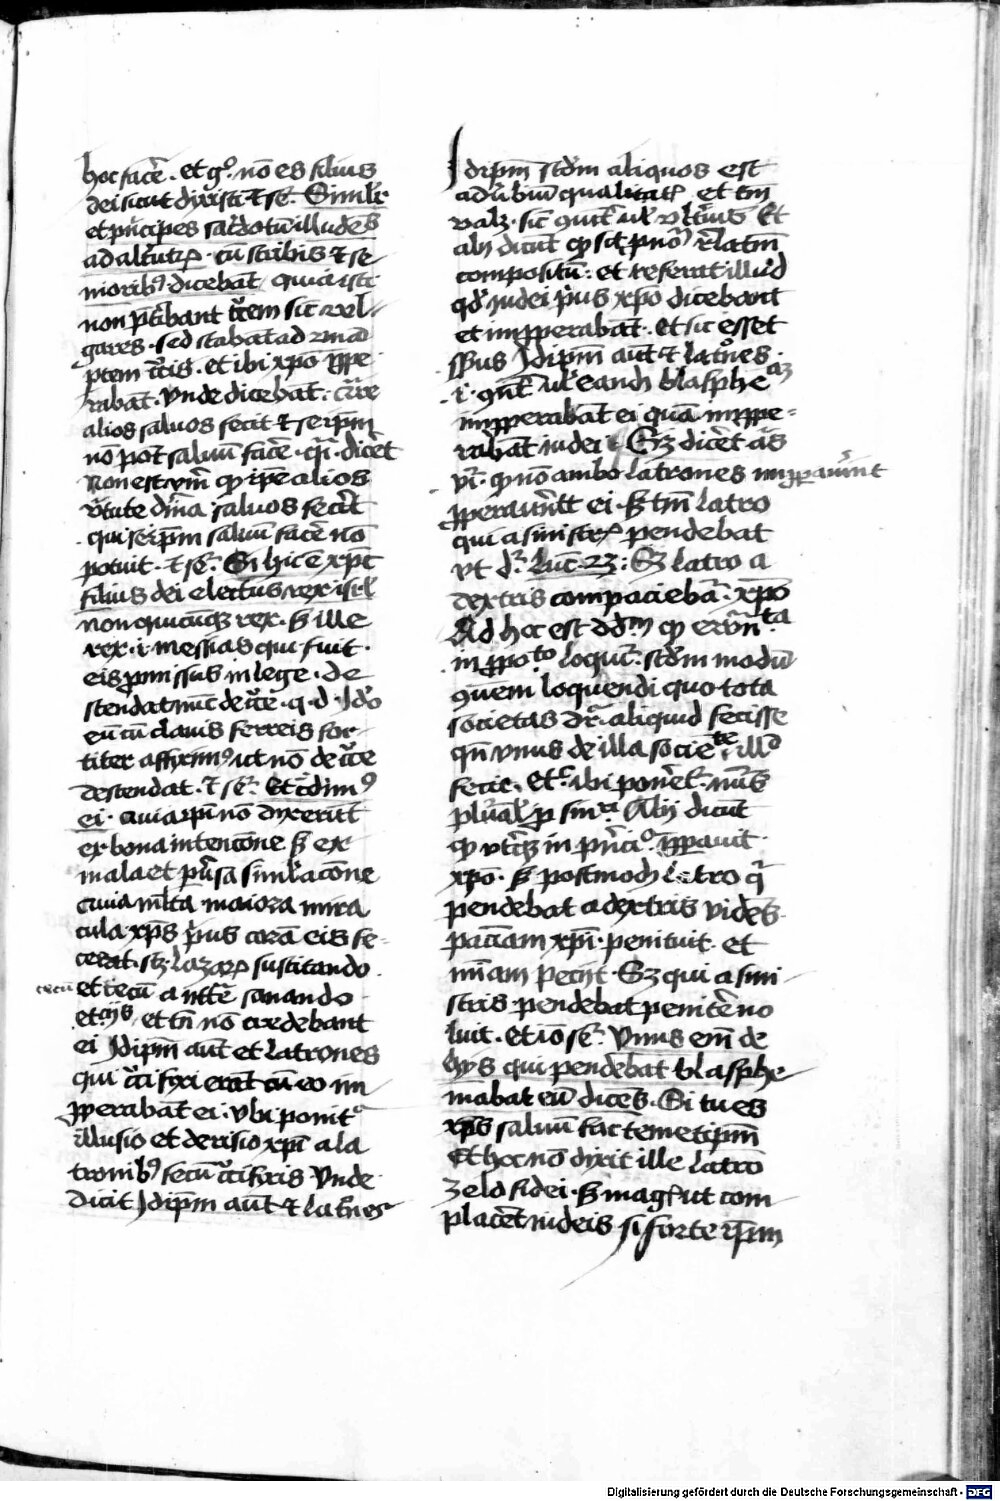 hoc facē · et gͦ · nō es filius
dei sicut dixisti ⁊ sēͬ · Simılr
et pͥncipes sacͬdotū illudētes
ad altͬutrꝫ · cū scribis ⁊ se
nioribꝰ dicebāt quia isti
non pͭibant cͬcem sic wl
gares · sed stabāt ad
ptem cͬcis · et ibi xpō īppe
rabāt · vnde dicebāt ·
alios saluos fecit ⁊ seip̄m
nō pōt saluū facē · qͥ · dicēt
Non est verū qͥ ip̄e alios
vͥtute dīna saluos fecit
qui seip̄m saluū facē nō
potuit · ⁊ sēͬ · Si hic ē xp̄c
filius dei electus rex isrl
non quicūqꝫ rex · sꝫ ille
rex · i · messias qui fuit ·
eis pmissus in lege · de
scendat nūc de cͬce · q · d · Ido
eū cū clauis ferreis for
titer affixımꝰ ut nō de cͬce
descendat · ⁊ sēͬ · Et cͬdimꝰ
ei · Quia ip̄i nō dixerūt
ex bona intencōne sꝫ ex
mala et puͥsa simlacōne
Quia mͭlta maiora mira
cula xp̄s pͥus corā eis fe-
cerat · sꝫ lazarꝫ suscitando
cecū et cecū a natͥ sanando
et cͥs, et tn̄ nō credebant
ei Idip̄m aūt et latrones
qui cͬcifixi erāt cū eo im
pperabāt ei · vbi ponitͬ
illusio et derisio xp̄i a la
tronibꝰ secū cͬcifixis Vnde
dicit Idip̄m aūt ⁊ latͦnes
Idip̄m scd̄m aliquos est
aduͥbiū qualitatꝭ et tm̄
valꝫ · sic vl vltͥius Et
alij dicūt qͥ sit pnōͫ rͤlatm̄
compositū · et referat illud
qd̓ iudei pͥus xpō dicebant
et impperabāt · et sic esset
sꝫsus Idip̄m aūt ⁊ latͦnes ·
· i · vl eandē blasphe aꝫ
impperabāt ei quā imppe-
rabāt iudei Sꝫ dicēt ās
vͥ · qͥ nō ambo latrones imppauͥnt
ei · sꝫ tm̄ latro
qui a sinistrꝭ pendebat
vt dͬ · Luc · 23 · Sꝫ latro a
dextris compaciebāͬ · xpō
Ad hoc est dōͫ qͥ euāgͥta
in ppoͭo loquitͬ · scd̄m modū
loquendi quo tota
societas dͬ · aliquid fecisse
qn̄ vnus de illa societate illͩ
fecit · etͨ ibi ponitͬ · nūus
plͬalꝭ p singͬi Alij dicūt
qͥ vtͬqꝫ in pͥnciͦ · īppauit
xpō · sꝫ postmodū latro qͥ
pendebat a dextris vidēs
pacͥam xpī · penituit · et
vn̄iam pecijt · Sꝫ qui a sini
stris pendebat penitēre no
luit · et iō sēͬ · Vnus em̄ de
hijs qui pendebat blasphe
mabat eū dicēs · Si tu es
xp̄s saluū fac temetip̄m
Et hoc nō dixit ille latro
zelo fidei · sꝫ magꝭ ut com
placēt iudeis si forte ip̄m
Digitalisierung gefördert durch die Deutsche Forschungsgemeinschaft - DFG